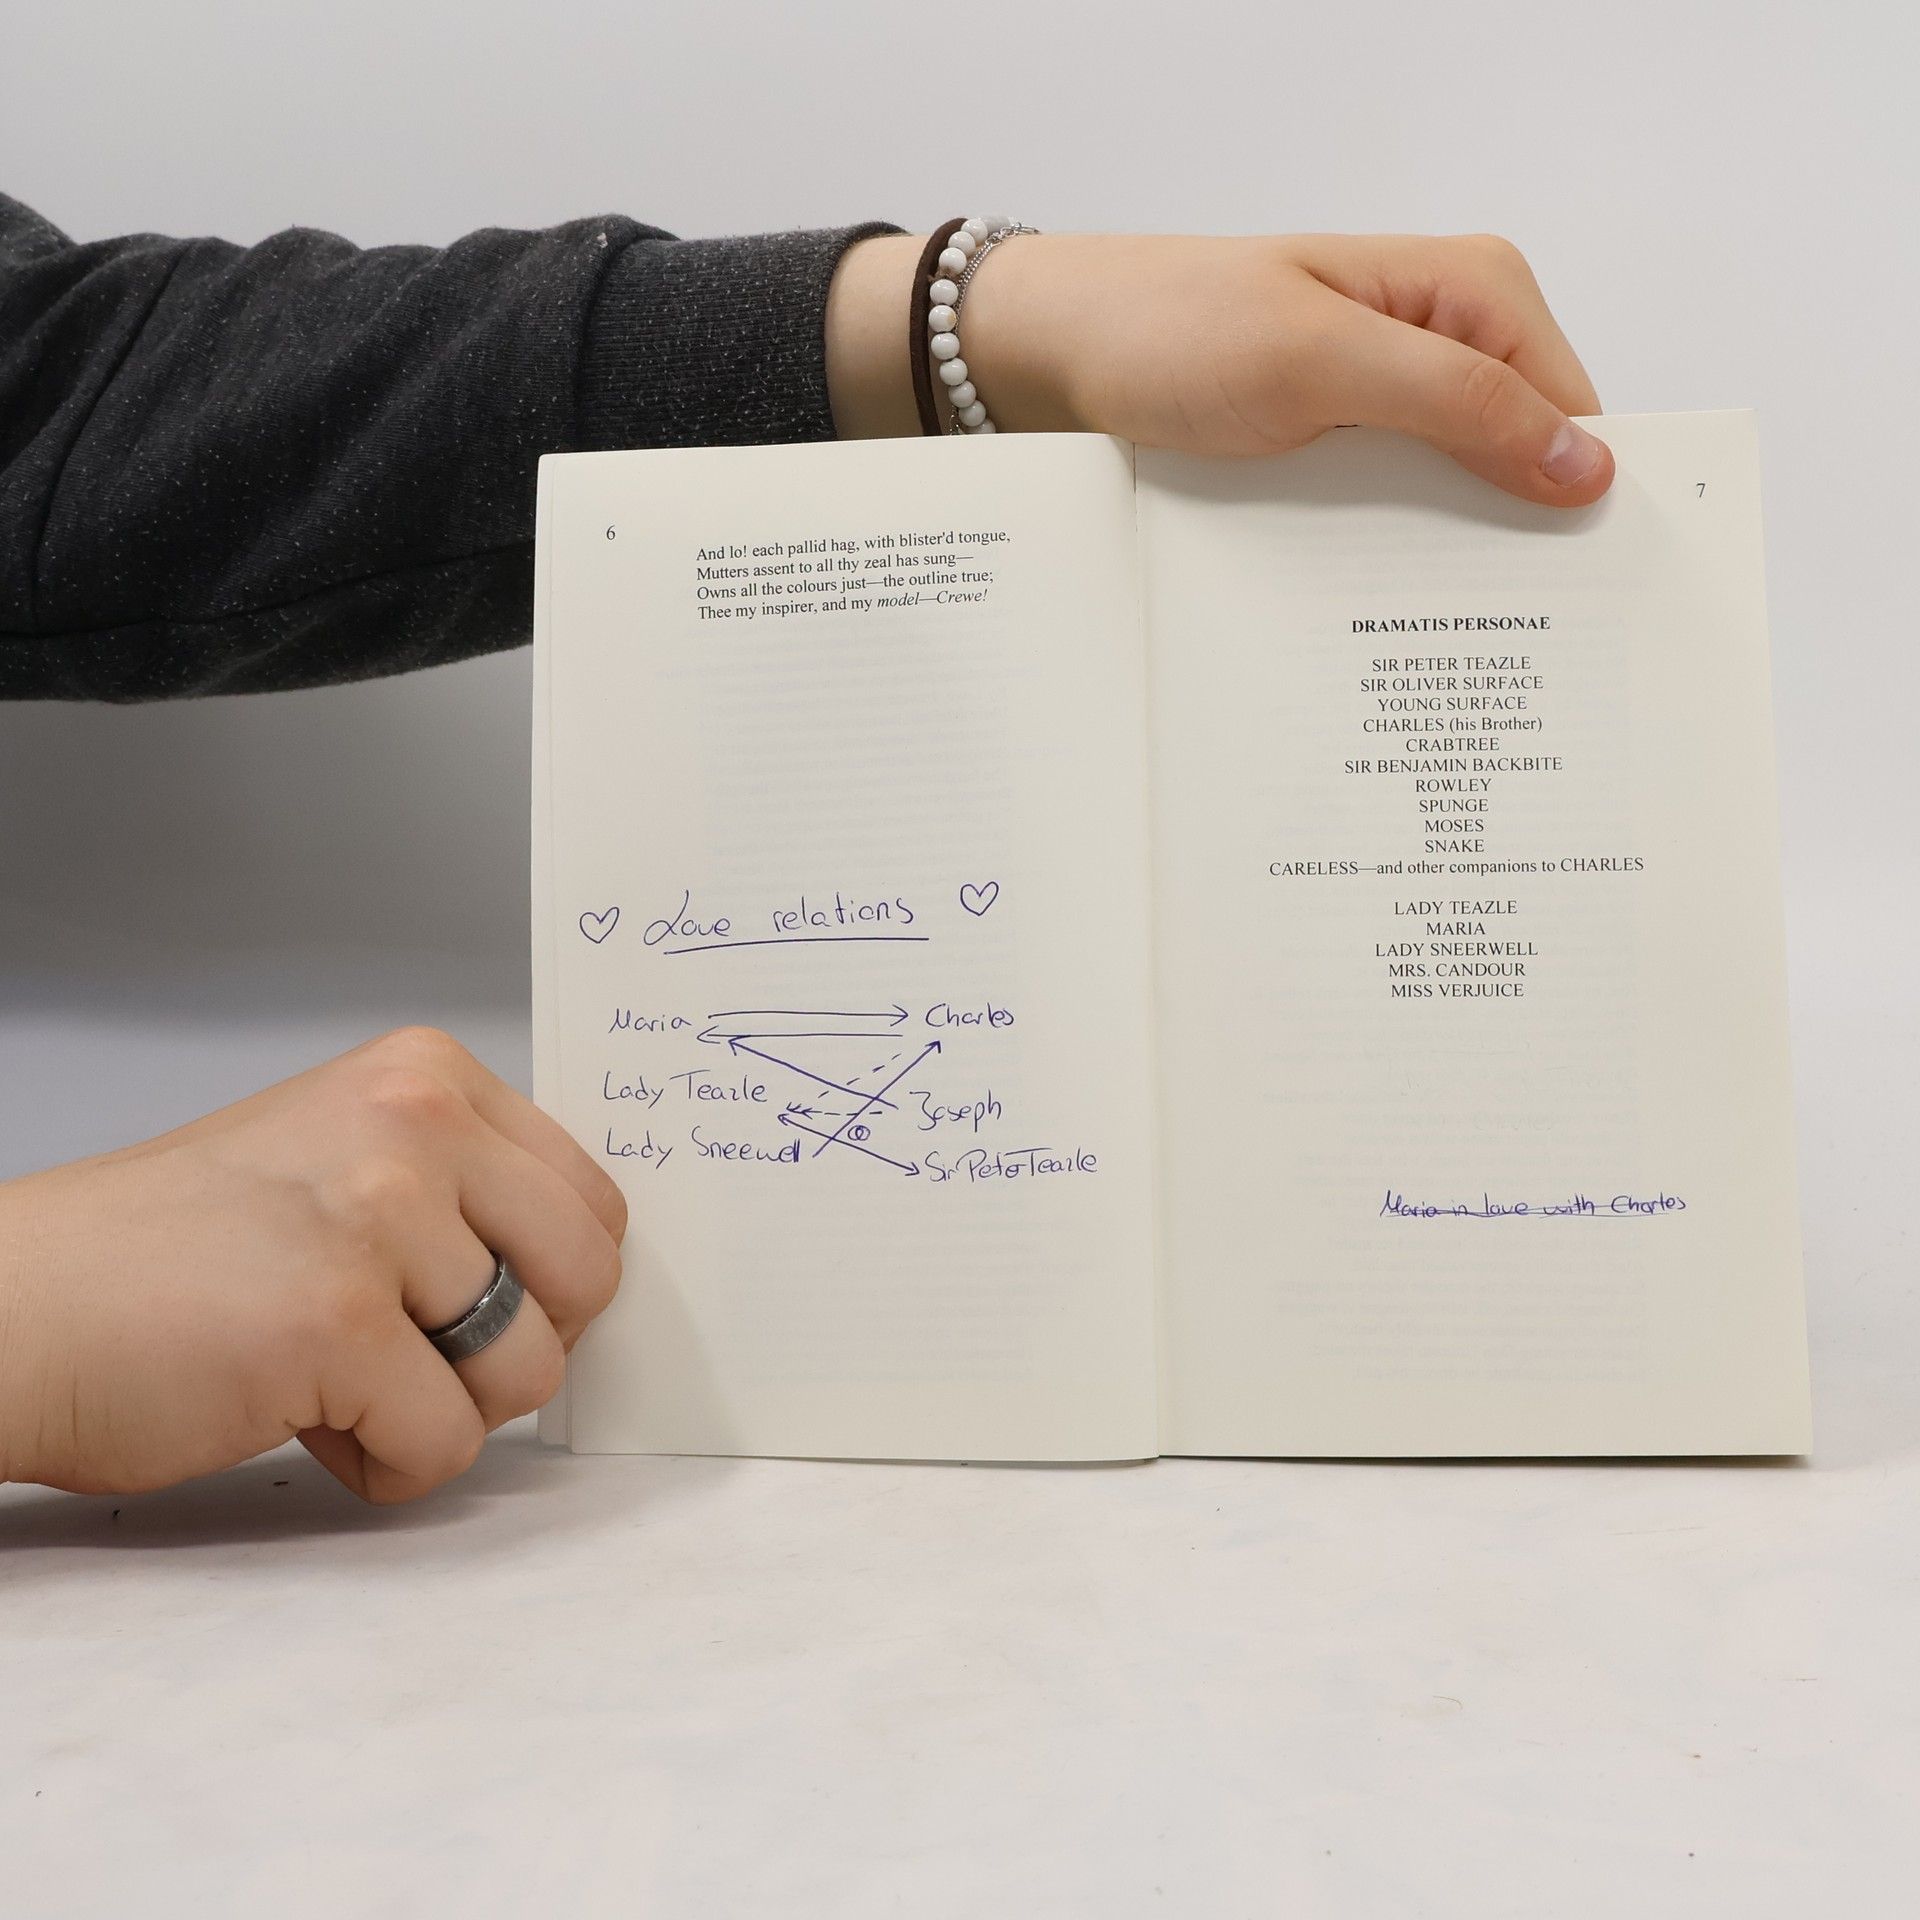 6
And lo! each pallid hag, with blister'd tongue,
Mutters assent to all thy zeal has sung—
Owns all the colours just—the outline true;
Thee my inspirer, and my model—Crewe!
♡ Love relations ♡
Maria Charles
Lady Teazle Joseph
Lady Sneewell Sir Peter Teazle
7
DRAMATIS PERSONAE
SIR PETER TEAZLE
SIR OLIVER SURFACE
YOUNG SURFACE
CHARLES (his Brother)
CRABTREE
SIR BENJAMIN BACKBITE
ROWLEY
SPUNGE
MOSES
SNAKE
CARELESS—and other companions to CHARLES
LADY TEAZLE
MARIA
LADY SNEERWELL
MRS. CANDOUR
MISS VERJUICE
Maria in love with Charles